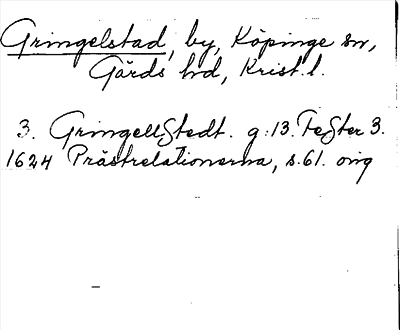 Gringelstad, by, Köpinge sn,
Gärds hd, Krist. l.
3. GringellStedt. g:13. FeSter 3.
1624 Prästrelationerna, s. 61. orig